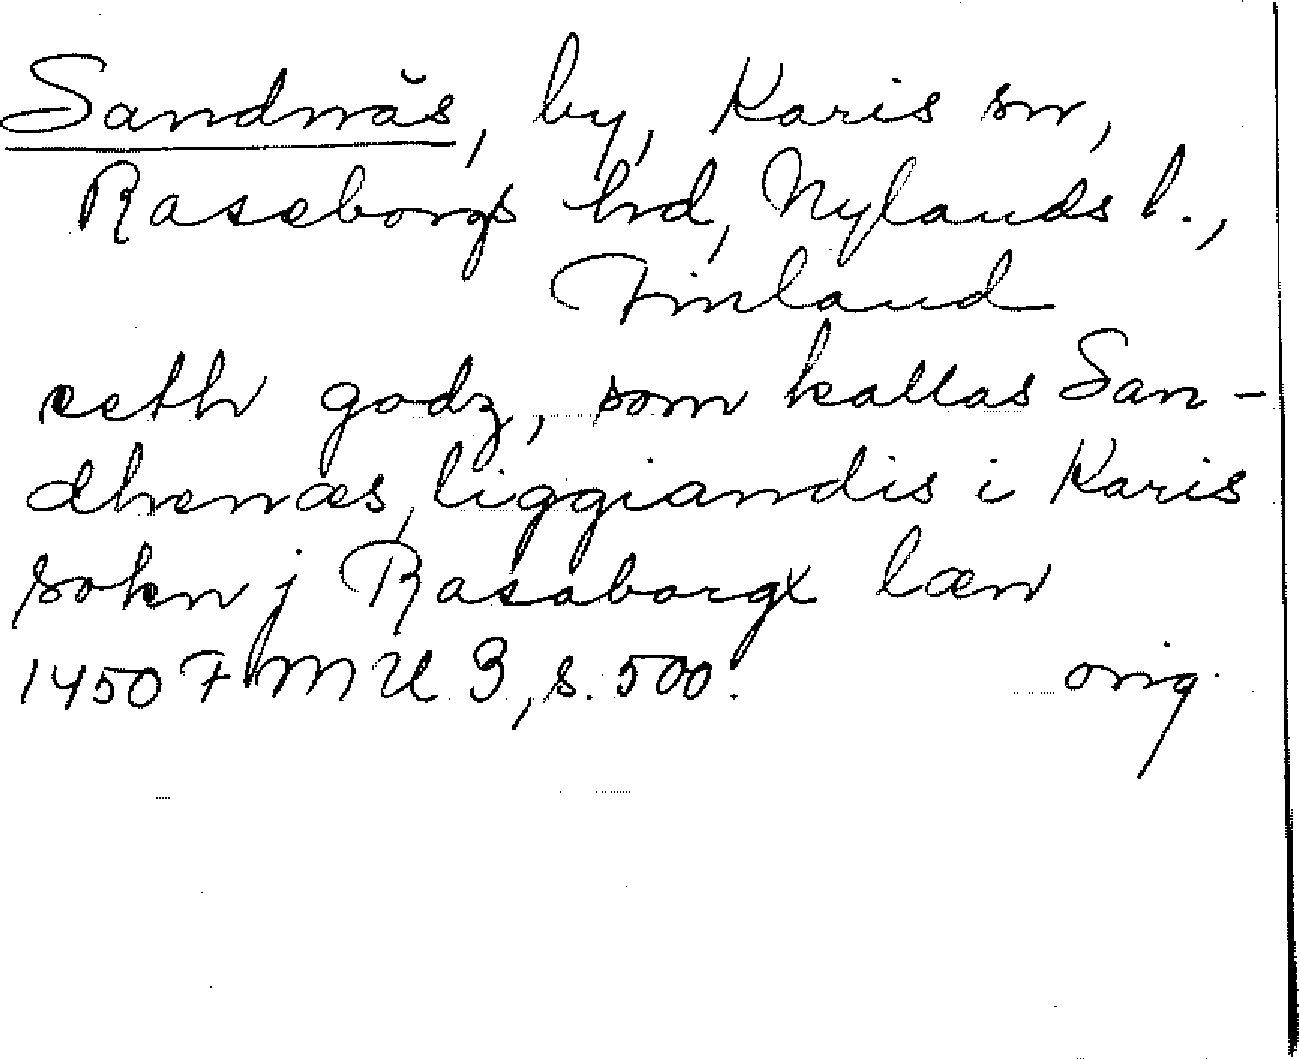 Sandnäs, by, Karis sn,
Raseborgs hrd, Nylands l.,
Finland
eeth godz, som kallas San-
dhenæs, liggiandis i Karis
sokn j Rasaborgx læn
1450 FMU 3, s. 500. orig.